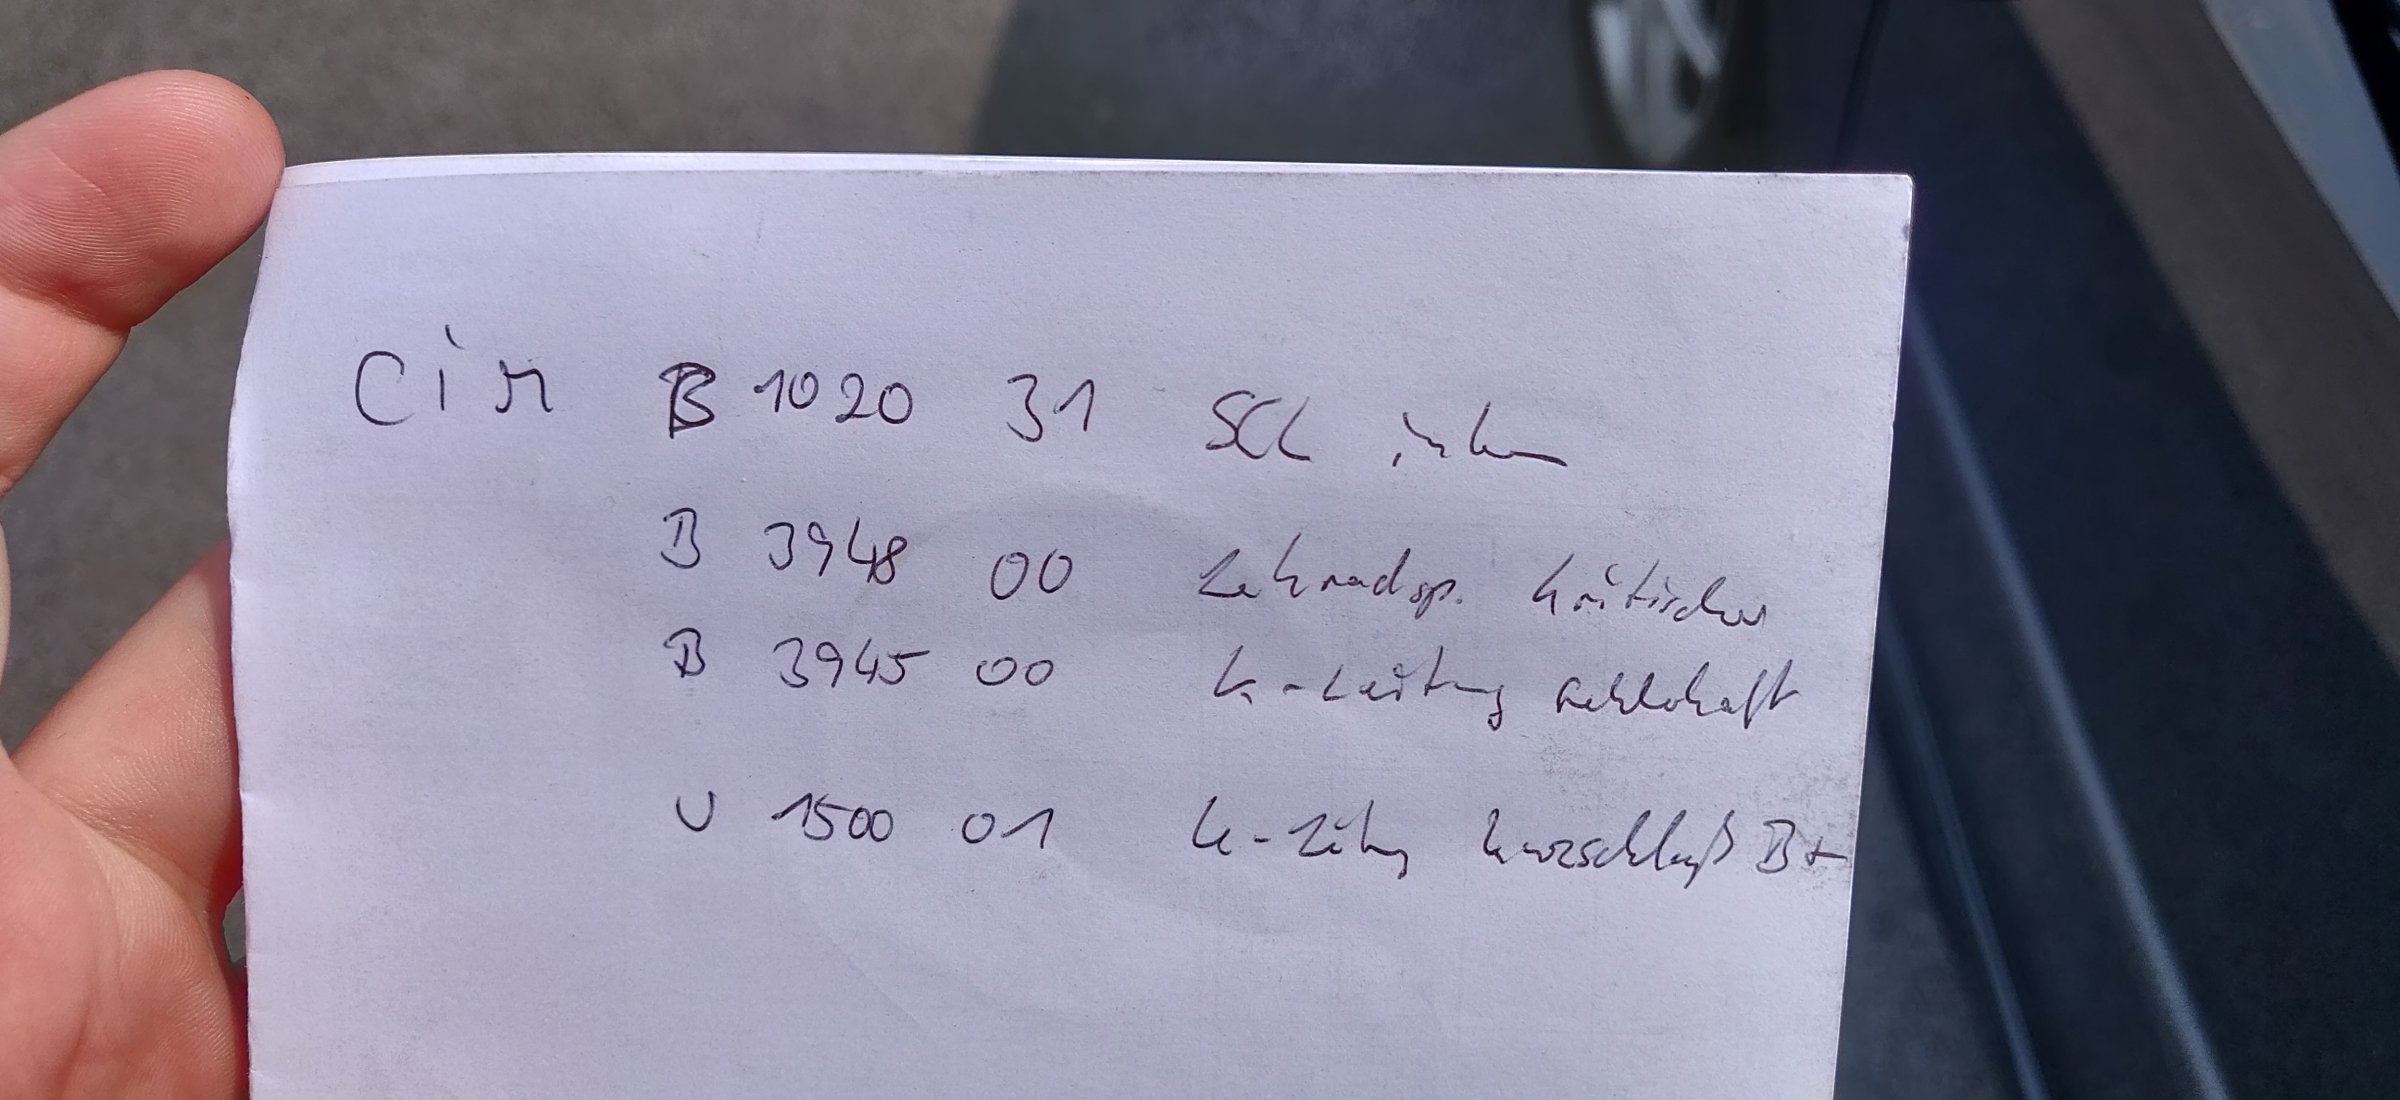 CiM B 1020 31 SCL intern
B 3948 00 Lenkradsp. kritischer
B 3945 00 K-Leitung fehlerhaft
U 1500 01 K-Ltg Kurzschluß B+